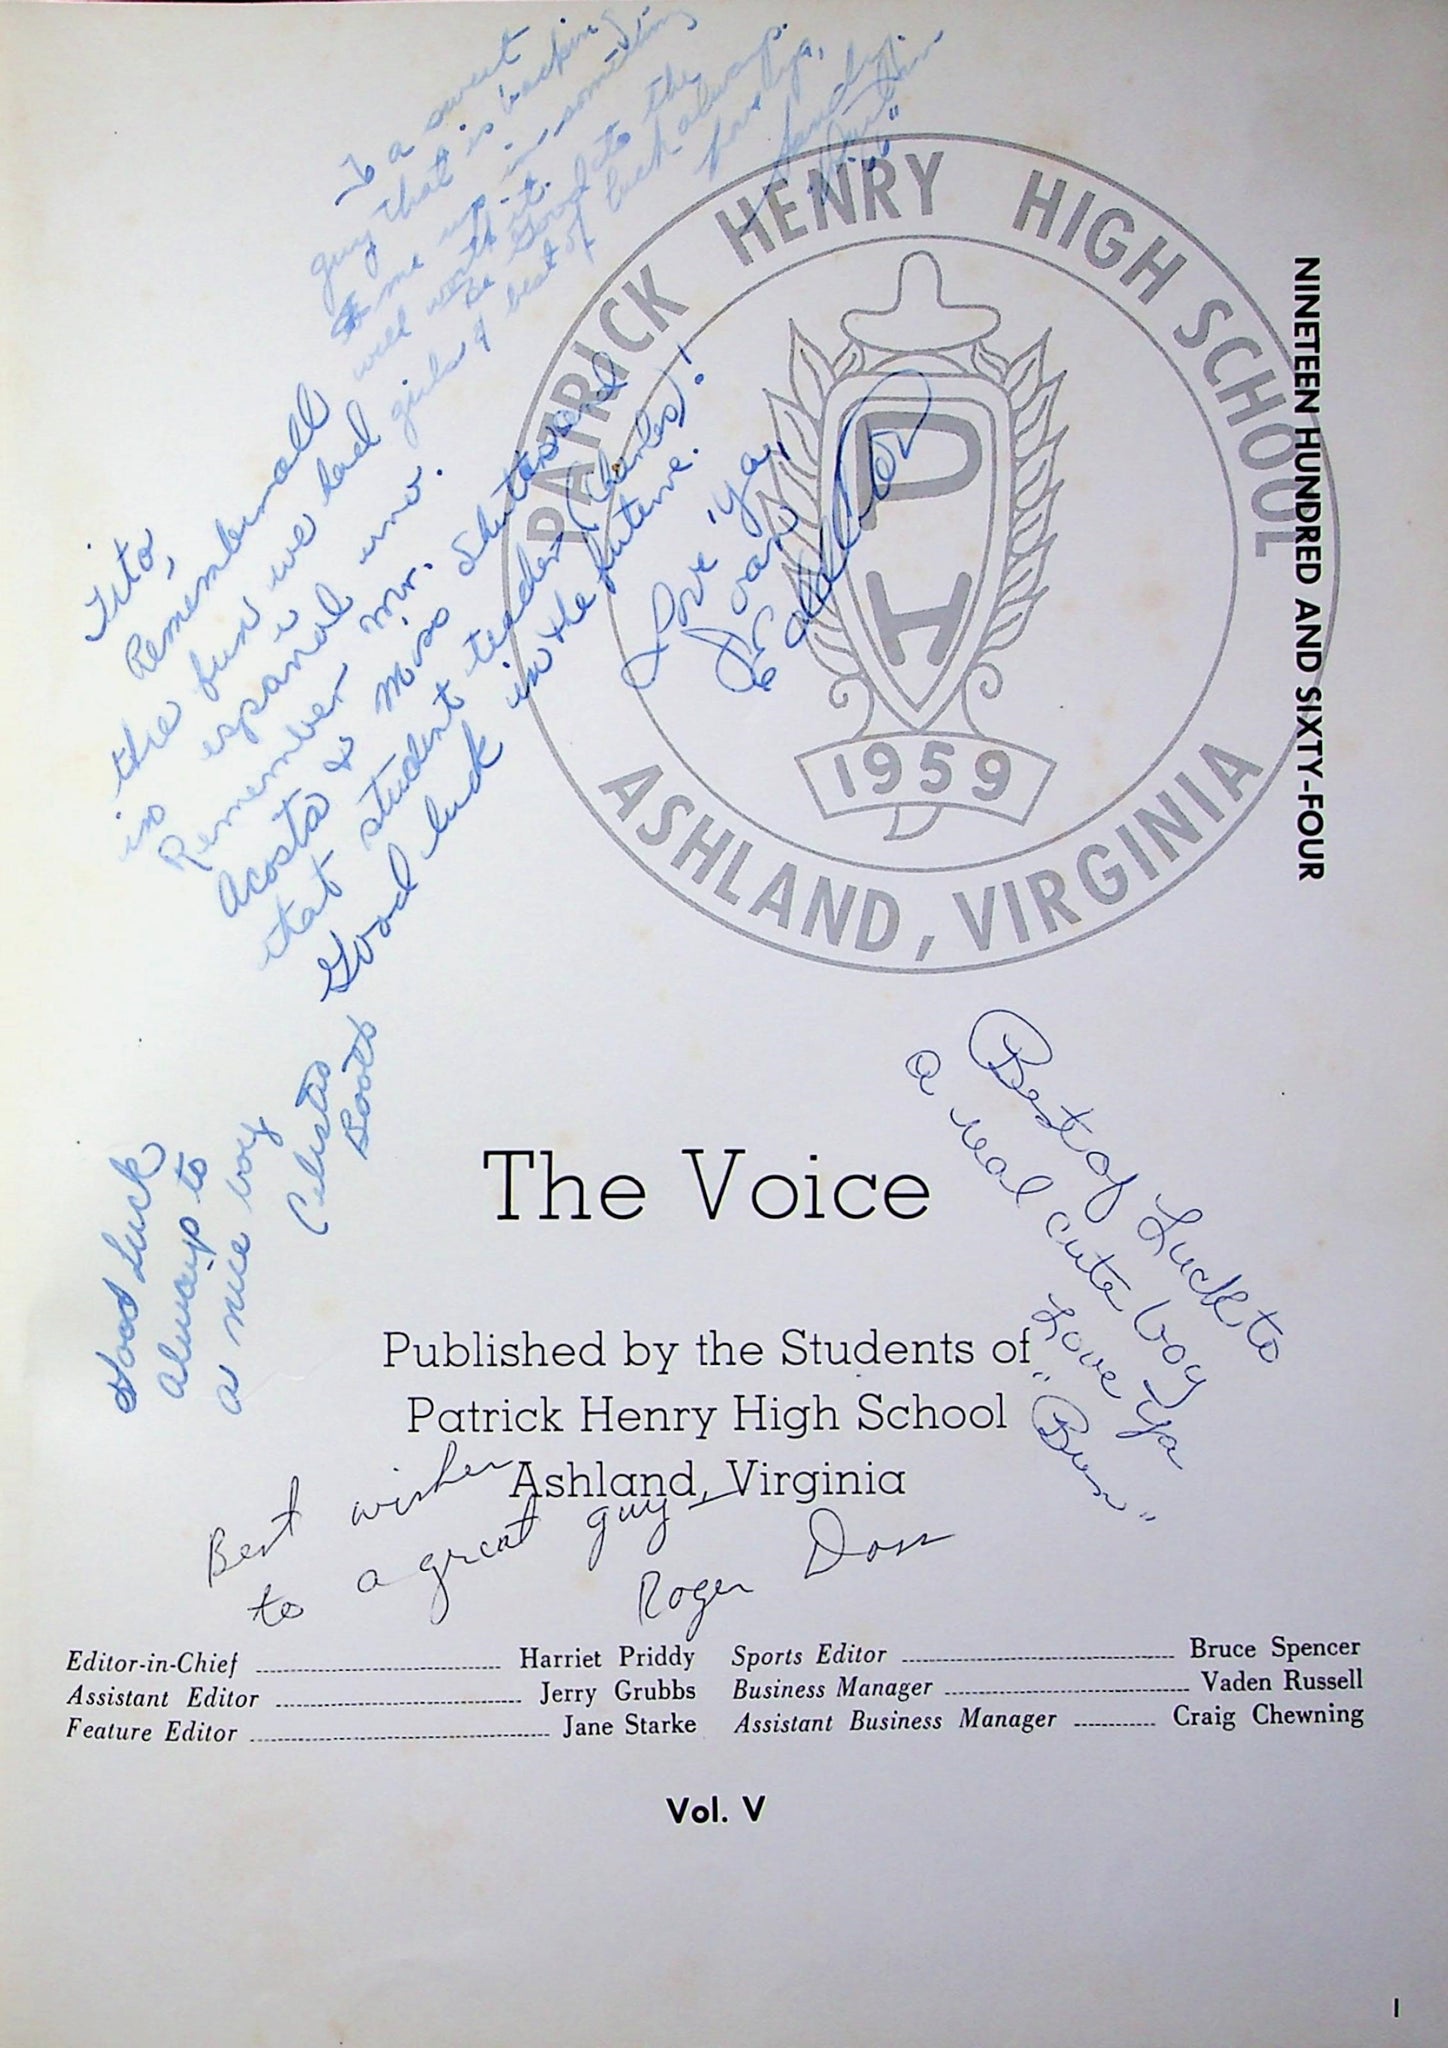 To a sweet
guy that is backing
me up in something
well worth it.
Be Good to the
girls & best of luck always.
Love ya,
Sandy
"66"
PATRICK HENRY HIGH SCHOOL
ASHLAND, VIRGINIA
PH
1959
NINETEEN HUNDRED AND SIXTY-FOUR
Tito,
Remember all
the fun we had
in espanol uno.
Remember Mr.
Acosta & Miss
that student teacher (Charles)!
Good luck in the future.
Love 'ya,
Joan
Good Luck
always to
a nice boy
Celestes
Booth
Best of Luck to
a real cute boy
Love Ya
The Voice
Published by the Students of
Patrick Henry High School
Ashland, Virginia
Best wishes
to a great guy—
Roger Doss
Editor-in-Chief Harriet Priddy Sports Editor Bruce Spencer
Assistant Editor Jerry Grubbs Business Manager Vaden Russell
Feature Editor Jane Starke Assistant Business Manager Craig Chewning
Vol. V
1